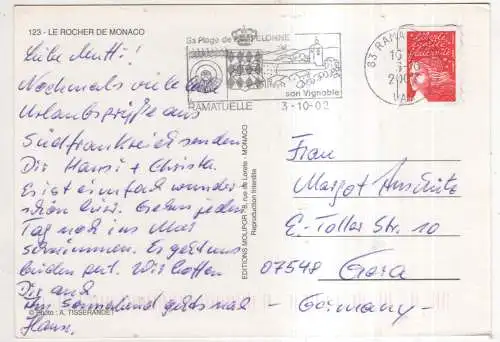 123 - LE ROCHER DE MONACO
Liebe Mutti!
Nochmals viele liebe
Urlaubsgrüße aus
Südfrankreich senden
Dir Hansi + Christa.
Es ist einfach wunder-
schön hier. Gehen jeden
Tag noch ins Meer
schwimmen. Es geht uns
beiden gut. Wir hoffen
Dir auch
geht's mal
© Photo: A. TISSERAND
EDITIONS MOLIPOR - 8, rue de Lorete - MONACO
Reproduction Interdite
Sa Plage de PAMPELONNE
son Vignoble
RAMATUELLE
3-10-02
83 RAMA
Frau
Margot
E.-Toller Str. 10
07548 Gera
- Germany -